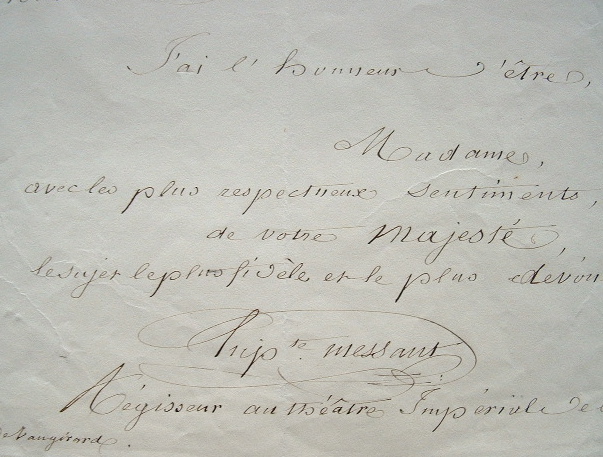 J'ai l'honneur d'être,
Madame,
avec les plus respectueux sentiments,
de votre Majesté,
le sujet le plus fidèle, et le plus dévou
messant
Régisseur au théâtre Impérial de
Vaugirard.